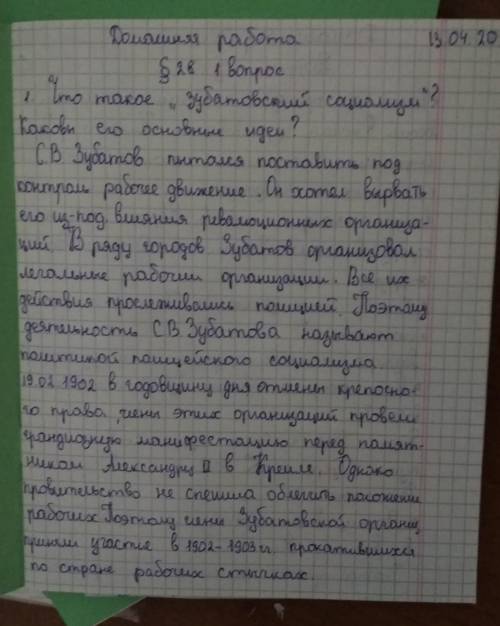 Домашняя работа 13.04.20
§ 28 1 вопрос
1. Что такое „Зубатовский социализм"?
Каковы его основные идеи?
С.В Зубатов питался поставить под
контроль рабочее движение. Он хотел вырвать
его из-под влияния революционных организа-
ций. В ряду городов Зубатов организовал
легальные рабочии организации. Все их
действия прослеживались полицией. Поэтому
деятельность С.В.Зубатова называют
политикой полицейского социализма.
19.02.1902 в годовщину дня отмены крепосно-
го права, члены этих организаций провели
грандиозную манифестацию перед памят-
ником Александру II в Кремле. Однако
правительство не спешила облегчить положение
рабочих Поэтому члены Зубатовской организ
приняли участие в 1902-1903 гг. прокатившихся
по стране рабочих стычках.